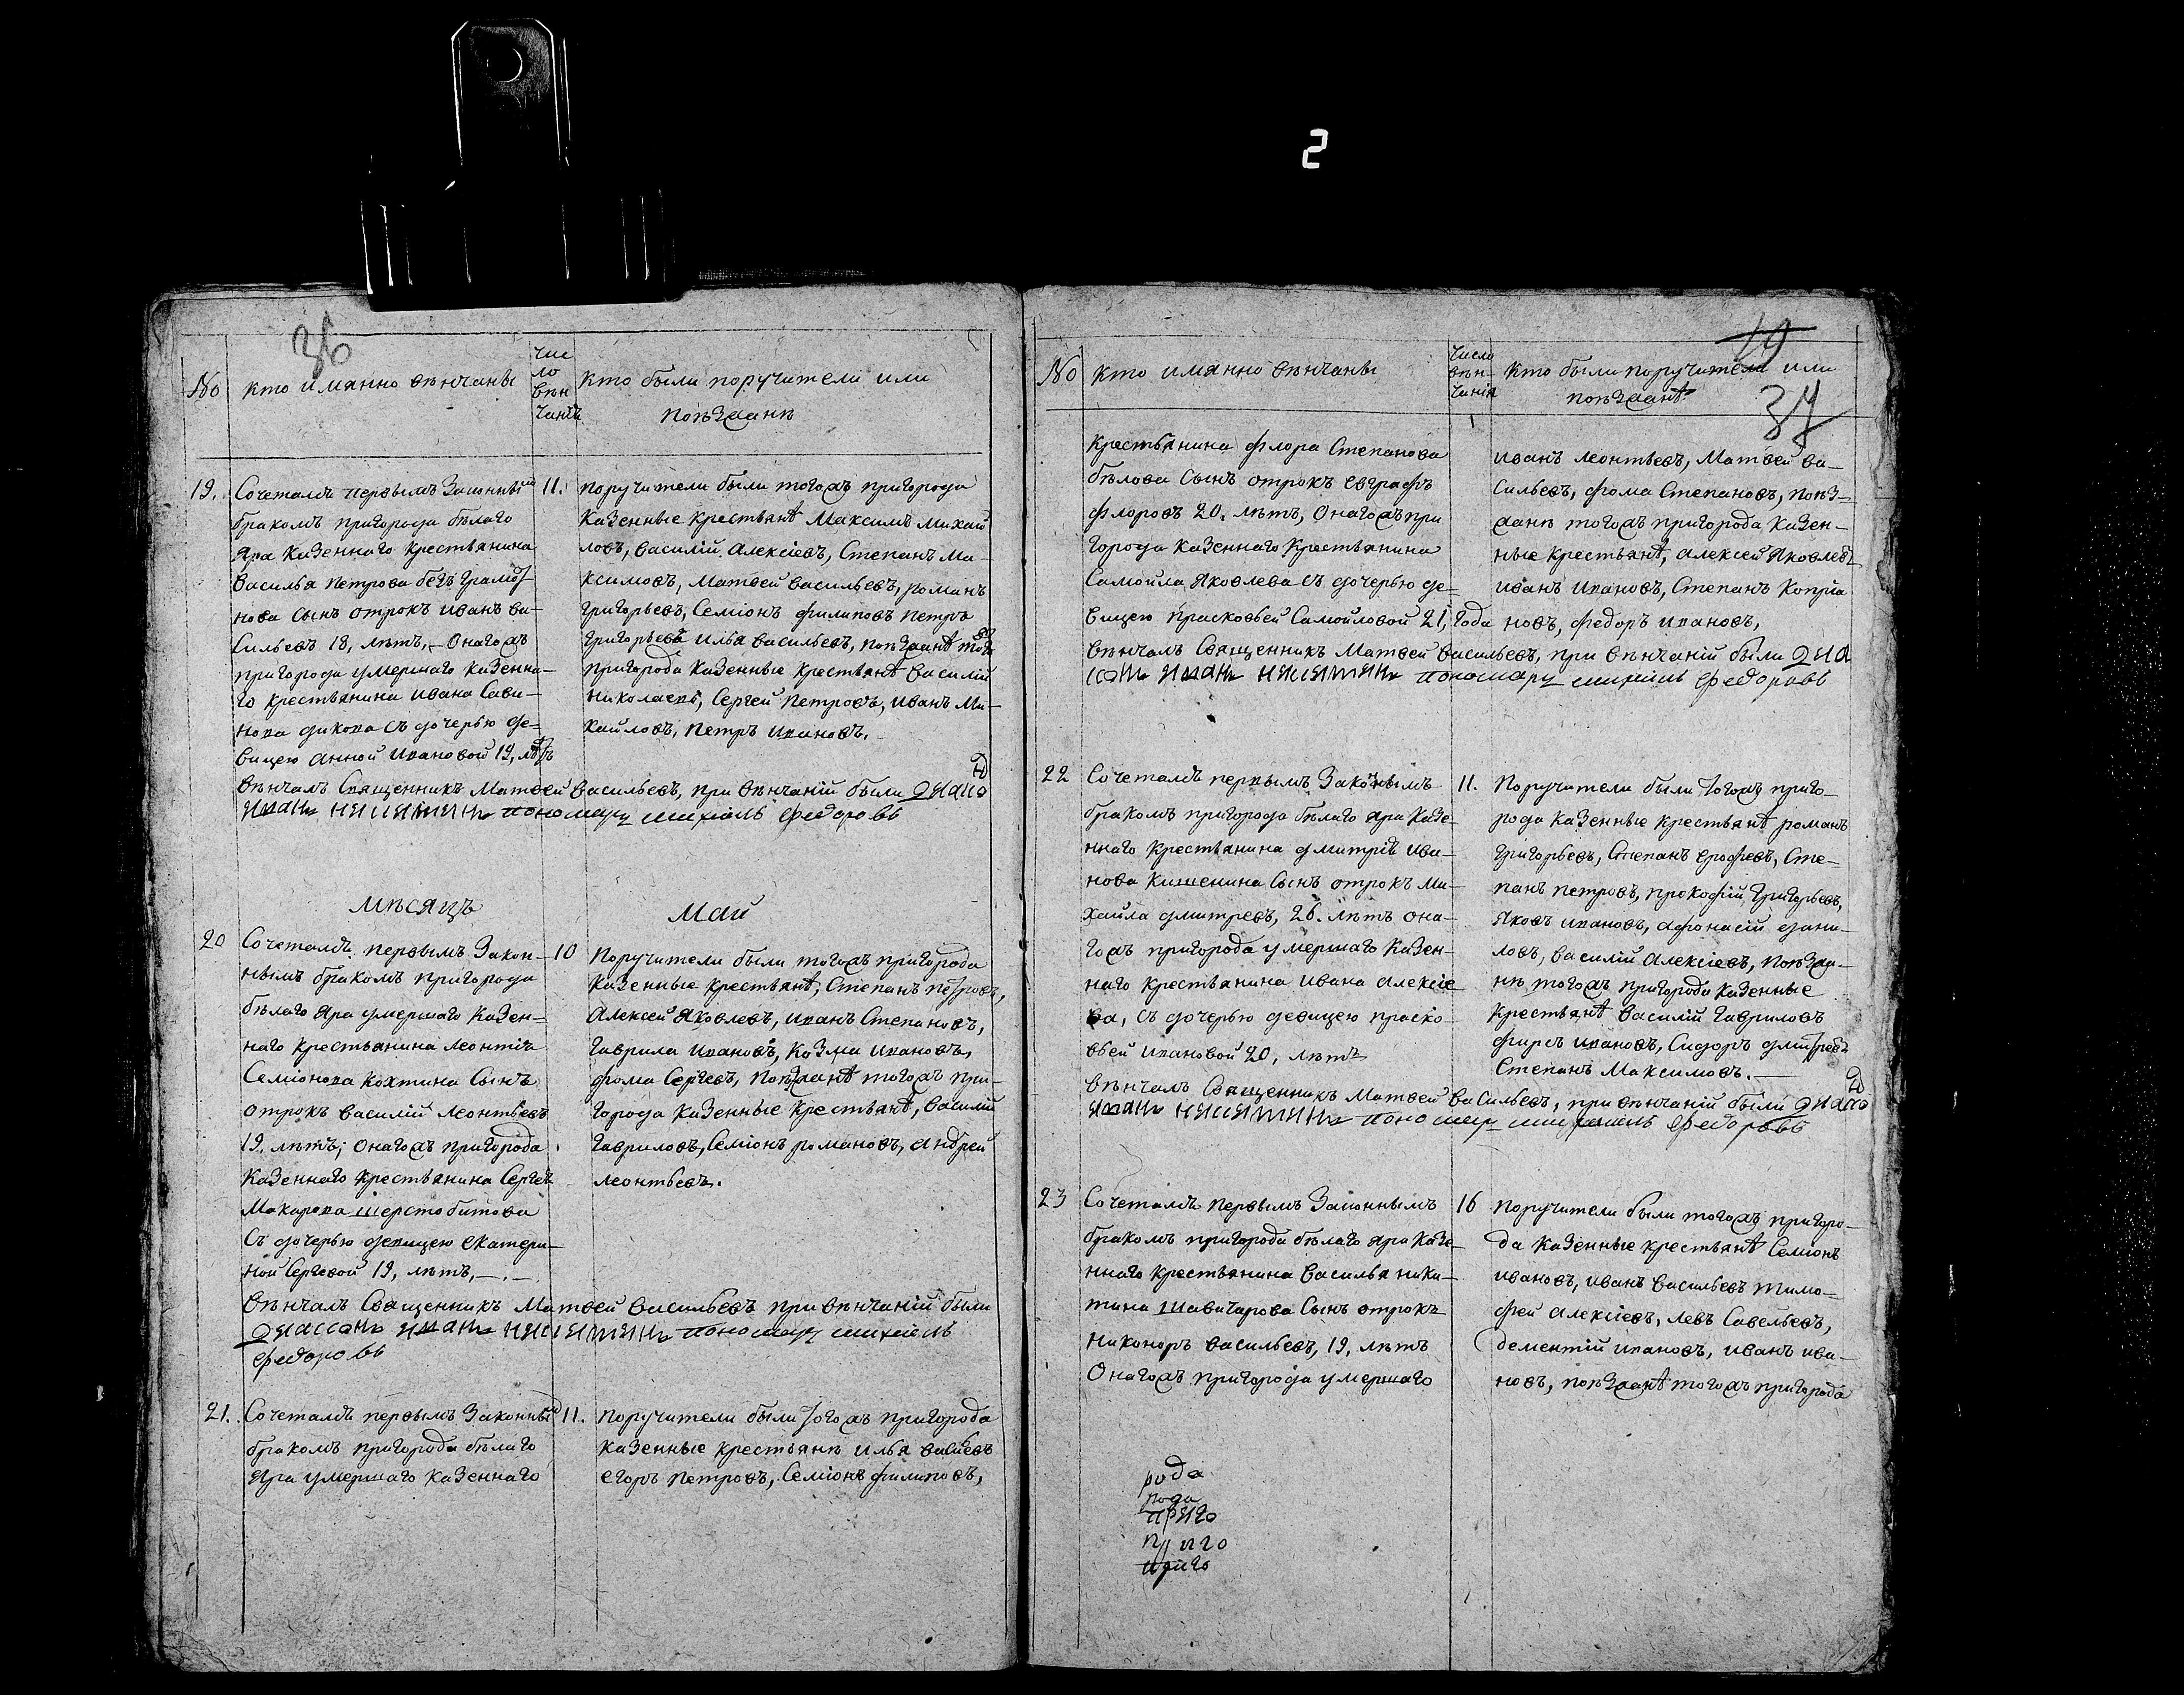 2
36
№
кто имянно вѣнчаны
чис
ло
вѣн
чанія
кто были поручители или
поѣзжанѣ
19.
Сочетался первымъ Законнымъ
бракомъ пригорода бѣлаго
Яра казеннаго крестьянина
Василья Петрова
нова сынъ отрокъ иванъ ва-
сильевъ 18, лѣтъ, – Онагожъ
пригорода умершаго казенна-
го крестьянина ивана Сави-
нова дикова съ дочерью де-
вицею анной ивановой 19, лѣтъ
11.
поручители были тогожъ пригорода
казенные крестьянѣ Максимъ Михай
ловъ, василій алексіевъ, Степанъ Ма-
ксимовъ, Матвей васильевъ, романъ
григорьевъ, Семіонъ филиповъ петръ
григорьевъ илья васильевъ, поѣзжанѣ тогожъ
пригорода казенные крестьянѣ василій
николаевъ, Сергей петровъ, иванъ Ми-
хайловъ, петръ ивановъ.
вѣнчалъ Священникъ Матвей васильевъ, при вѣнчаній были
иванъ никитинъ пономарь федоровъ
мѣсяцъ
Май
20
Сочетался первымъ Закон-
нымъ бракомъ пригорода
бѣлаго яра умершаго казен-
наго крестьянина леонтія
Семіонова кохтина сынъ
отрокъ василій леонтьевъ
19. лѣтъ; онагожъ пригорода
казеннаго крестьянина Сергея
Макарова шерстобитова
Съ дочерью девицею екатери-
ной Сергевой 19, лѣтъ, – . –
10
Поручители были тогожъ пригорода
казенные крестьянѣ, Степанъ петровъ,
алексей яковлевъ, иванъ Степановъ,
гаврила ивановъ, козма ивановъ,
фома Сергевъ, поѣзжанѣ тогожъ при-
города казенные крестьянѣ, василій
гавриловъ, Семіонъ романовъ, андрей
леонтьевъ.
вѣнчалъ Священникъ Матвей васильевъ при вѣнчаній были
иванъ никитинъ пономарь
федоровъ
21.
Сочетался первымъ Законнымъ
бракомъ пригорода бѣлаго
яра умершаго казеннаго
11.
поручители были тогожъ пригорода
казенные крестьянѣ илья васильевъ
егоръ петровъ, Семіонъ филиповъ,
19
37
№
кто имянно вѣнчаны
число
вѣн-
чанія
кто были поручители или
поѣзжанѣ
крестьянина флора Степанова
бѣлова сынъ отрокъ евграфъ
флоровъ 20. лѣтъ, онагожъ при
города казеннаго крестьянина
Самойла яковлева съ дочерью де-
вицею прасковьей Самойловой 21, года
иванъ леонтьевъ, Матвей ва-
сильевъ, фома Степановъ, поѣз-
жанѣ тогожъ пригорода казен-
ные крестьянѣ, алексей яковлевъ
иванъ ивановъ, Степанъ копріа
новъ, федоръ ивановъ,
вѣнчалъ Священникъ Матвей васильевъ, при вѣнчаній были
иванъ никитинъ пономарь федоровъ
22
Сочетался первымъ Законнымъ
бракомъ пригорода бѣлаго яра казе-
ннаго крестьянина дмитрія ива-
нова кишенина сынъ отрокъ ми-
хайла дмитревъ, 26. лѣтъ она-
гожъ пригорода умершаго казен-
наго крестьянина ивана алексіе
ва, съ дочерью девицею праско-
вьей ивановой 20, лѣтъ
11.
Поручители были тогожъ приго-
рода казенные крестьянѣ романъ
григорьевъ, Степанъ ерофевъ, Сте-
панъ петровъ, прокофій григорьевъ,
яковъ ивановъ, афонасій дани-
ловъ, василій алексіевъ, поѣзжа-
нѣ тогожъ пригорода казенные
крестьянѣ василій гавриловъ
фирсъ ивановъ, Сидоръ дмитревъ
Степанъ Максимовъ. –
вѣнчалъ Священникъ Матвей васильевъ, при вѣнчаній были
иванъ никитинъ федоровъ
23
Сочетался первымъ Законнымъ
бракомъ пригорода бѣлаго яра казе-
ннаго крестьянина василья ники-
тина шавичарова сынъ отрокъ
никоноръ васильевъ, 19, лѣтъ
Онагожъ пригорода умершаго
16
поручители были тогожъ пригоро-
да казенные крестьянѣ Семіонъ
ивановъ, иванъ васильевъ тимо-
фей алексіевъ, левъ Савельевъ,
дементій ивановъ, иванъ ива-
новъ, поѣзжанѣ тогожъ пригорода
рода
рода
приго
приго
приго